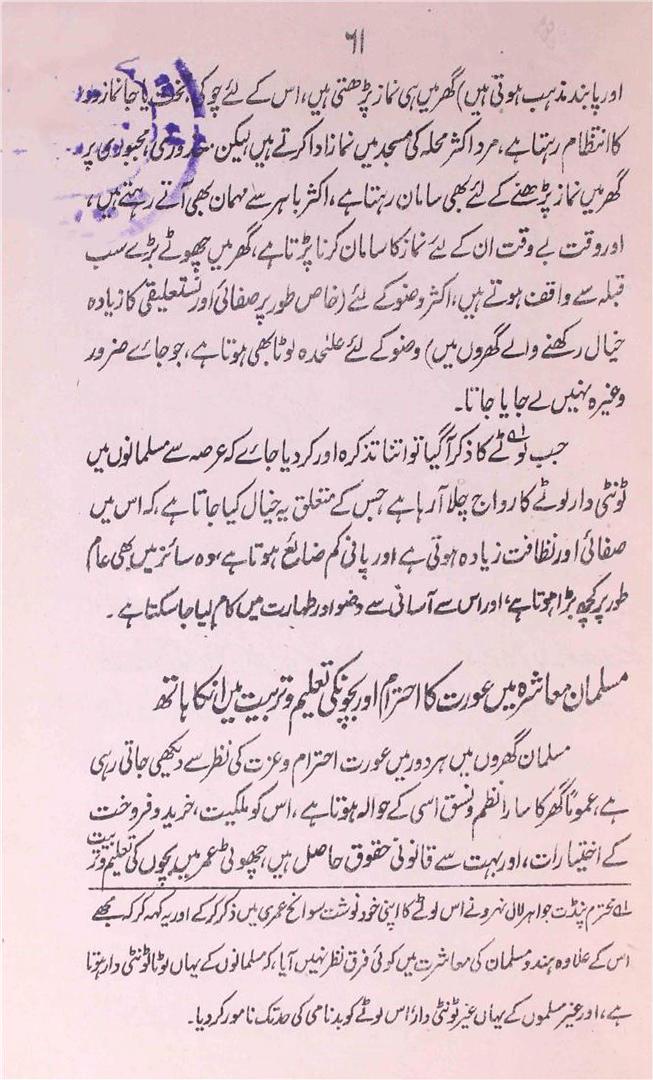 ۶۱
اور پابند مذہب ہوتی ہیں) گھر میں ہی نماز پڑھتی ہیں، اس کے لئے چوکی، تخت یا جانماز وغیرہ
کا انتظام رہتا ہے، مرد اکثر محلہ کی مسجد میں نماز ادا کرتے ہیں لیکن معذوری، مجبوری پر
گھر میں نماز پڑھنے کے لئے بھی سامان رہتا ہے، اکثر باہر سے مہمان بھی آتے رہتے ہیں،
اور وقت بے وقت ان کے لئے نماز کا سامان کرنا پڑتا ہے، گھر میں چھوٹے بڑے سب
قبلہ سے واقف ہوتے ہیں، اکثر وضو کے لئے (خاص طور پر صفائی اور نستعلیقی کا زیادہ
خیال رکھنے والے گھروں میں) وضو کے لئے علٰحدہ لوٹا بھی ہوتا ہے، جو جائے ضرور
وغیرہ نہیں لے جایا جاتا۔
جب لوٹے کا ذکر آگیا تو اتنا تذکرہ اور کر دیا جائے کہ عرصہ سے مسلمانوں میں
ٹونٹی دار لوٹے کا رواج چلا آرہا ہے جس کے متعلق یہ خیال کیا جاتا ہے، کہ اس میں
صفائی اور نظافت زیادہ ہوتی ہے اور پانی کم ضائع ہوتا ہے، وہ سائز میں بھی عام
طور پر کچھ بڑا ہوتا ہے، اور اس سے آسانی سے وضو اور طہارت میں کام لیا جا سکتا ہے۔
مسلمان معاشرہ میں عورت کا احترام اور بچونکی تعلیم و تربیت میں انکا ہاتھ
مسلمان گھروں میں ہر دور میں عورت احترام و عزت کی نظر سے دیکھی جاتی رہی
ہے، عموماً گھر کا سارا نظم و نسق اسی کے حوالہ ہوتا ہے، اس کو ملکیت، خرید و فروخت
کے اختیارات، اور بہت سے قانونی حقوق حاصل ہیں، چھوٹی عمر میں بچوں کی تعلیم و تربیت
لے محترم پنڈت جواہر لال نہرو نے اس لوٹے کا اپنی خود نوشت سوانح عمری میں ذکر کر کے اور یہ کہہ کر کہ مجھے
اس کے علاوہ ہندو مسلمان کی معاشرت میں کوئی فرق نظر نہیں آیا، کہ مسلمانوں کے یہاں لوٹا ٹونٹی دار ہوتا
ہے، اور غیر مسلموں کے یہاں غیر ٹونٹی دار، اس لوٹے کو بدنامی کی حد تک نامور کر دیا۔